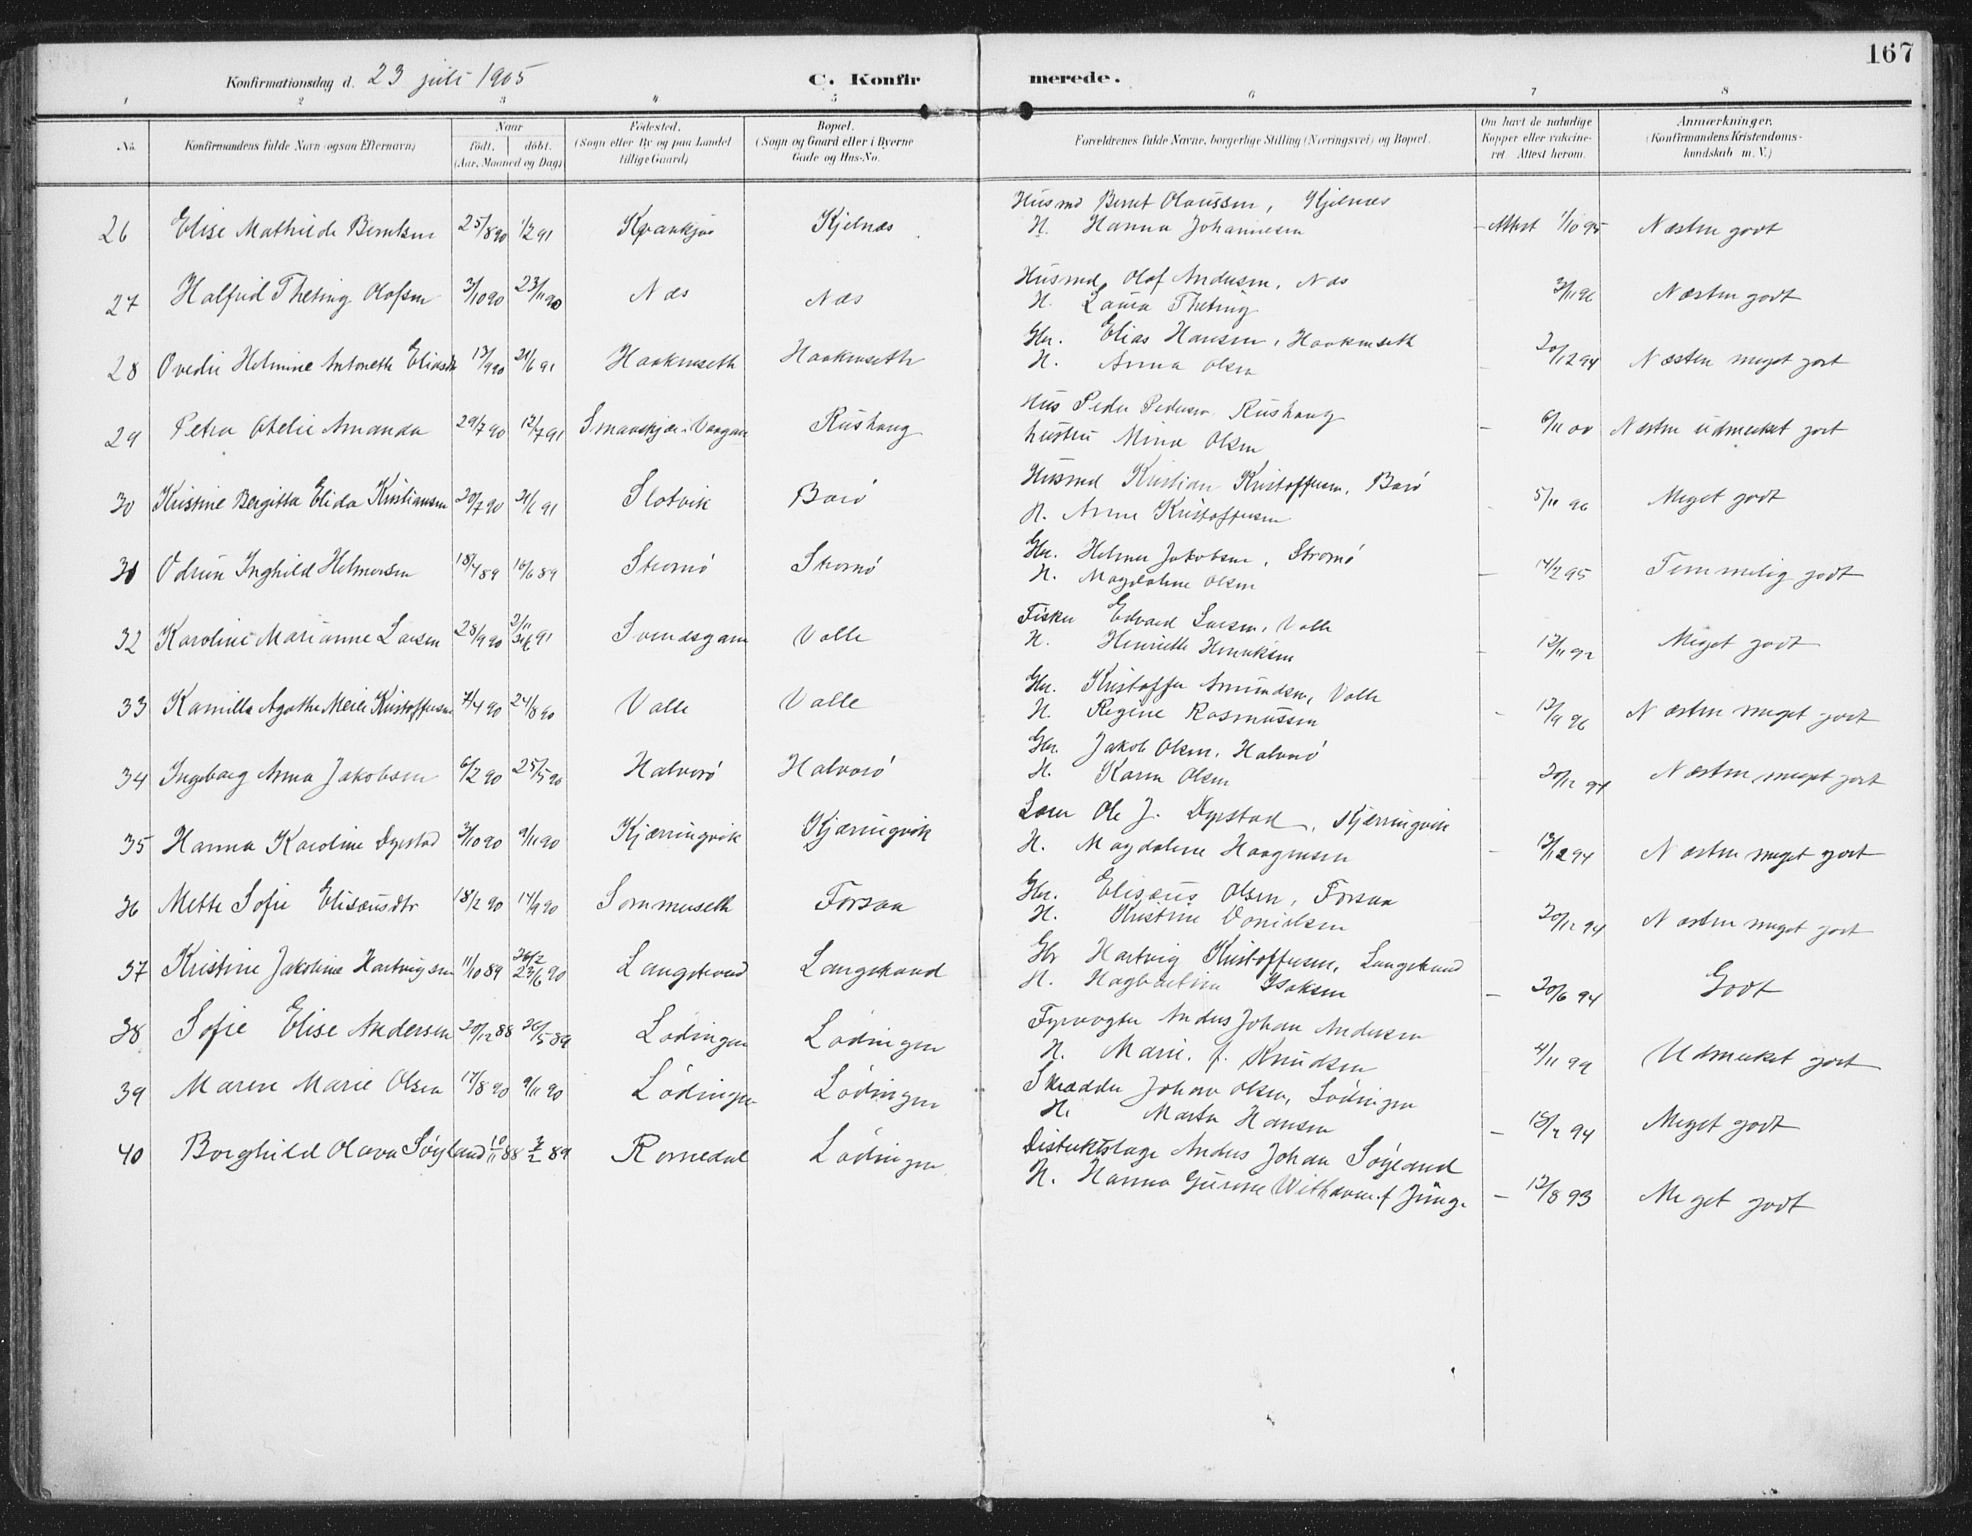 167
Konfirmationsdag d. 23 juli 1905
C. Konfirmerede.
1 2 3 4 5 6 7 8
No.
Konfirmandens fulde Navn (ogsaa Efternavn)
Naar
født. døbt.
(Aar, Maaned og Dag)
Fødested.
(Sogn eller By og paa Landet
tillige Gaard)
Bopæl.
(Sogn og Gaard eller i Byerne
Gade og Hus-No.
Forældrenes fulde Navne, borgerlige Stilling (Næringsvei) og Bopæl.
Om havt de naturlige
Kopper eller vakcine-
ret. Attest herom.
Anmærkninger.
(Konfirmandens Kristendoms-
kundskab m. V.)
26 Elise Mathilde Berntsen 25/8 90 1/2 91 Kjelnæs
Husmd Bernt Olaussen, Kjelnæs
H. Hanna Johannesen
- Attest 1/10 95 Næsten godt
27 Halfrid Theting Olofsen 3/10 90 23/11 90 Næs Næs
Husmd Olof Andersen, Næs
H. Laura Theting
3/11 96 Næsten godt
28 Ovedie Helmine Antonette 13/9 90 21/6 91 Haakenseth Haakenseth
Gbr. Elias Hansen, Haakenseth
H. Anna Olsen
- 20/12 94 Næsten meget godt
29 Petra Otelie Amanda 29/7 90 12/7 91 Rushaug
Hus Peder Pedersen Rushaug
hustru Mina Olsen
- 6/11 00 Næsten udmerket godt
30 Kristine Bergitta Elida Kristiansen 20/7 90 21/6 91 Slotvik Barø
Husmd Kristian Kristoffersen, Barø
H. Anne Kristoffersen
- 5/11 96 Meget godt
31 Odrun Inghild Helmersen 18/4 89 16/6 89 Stromø Stromø
Gbr. Helmer Jakobsen, Stromø
H. Magdalene Olsen
- 14/2 95 Temmelig godt
32 Karoline Marianne Larsen 28/9 90 2/11 21/6 91 Svendsgam Valle
Fisker Edvard Larsen, Valle
H. Henriette Henriksen
- 12/11 92 Meget godt
33 Kamilla Agathe Kristoffersen 7/4 90 24/8 90 Valle Valle
Gbr. Kristoffer Amundsen, Valle
H. Regine Rasmussen
- 12/9 96 Næsten meget godt
34 Ingeborg Anna Jakobsen 6/2 90 25/5 90 Halvorø Halvorø
Gbr. Jakob Olsen, Halvorø
H. Karen Olsen
- 20/12 94 Næsten meget godt
35 Hanna Karoline Dyrstad 3/10 90 9/11 90 Kjærringvik Kjæringvik
Lærer Ole J. Dyrstad, Kjærringvik
H. Magdalene Haagensen
- 13/12 94 Næsten meget godt
36 Mette Sofie Elisæusdtr 18/2 90 14/9 90 Sommerseth Forsaa
Gbr. Elisæus Olsen, Forsaa
H. Kristine Danielsen
- 20/12 94 Næsten meget godt
37 Kristine Jakobine Hartvigsen 11/10 89 26/2 23/6 90 Langstrand Langstrand
Gbr Hartvig Kristoffersen, Langstrand
H. Hagbartine Isaksen
- 20/6 94 Godt
38 Sofie Elise Andersen 20/12 88 26/5 89 Lødingen Lødingen
Fyrvogter Anders Johan Andersen
H. Marie. f. Knudsen
- 4/11 99 Udmerket godt
39 Maren Marie Olsen 17/8 90 9/11 90 Lødingen Lødingen
Skrædder Johan Olsen, Lødingen
H. Marta Hansen
- 18/2 94 Meget godt
40 Borghild Olava Søyland 10/11 88 3/2 89 Romedal Lødingen
Distriktslæge Anders Johan Søyland
H. Hanna Gurine f Jüng.
- 12/8 93 Meget godt